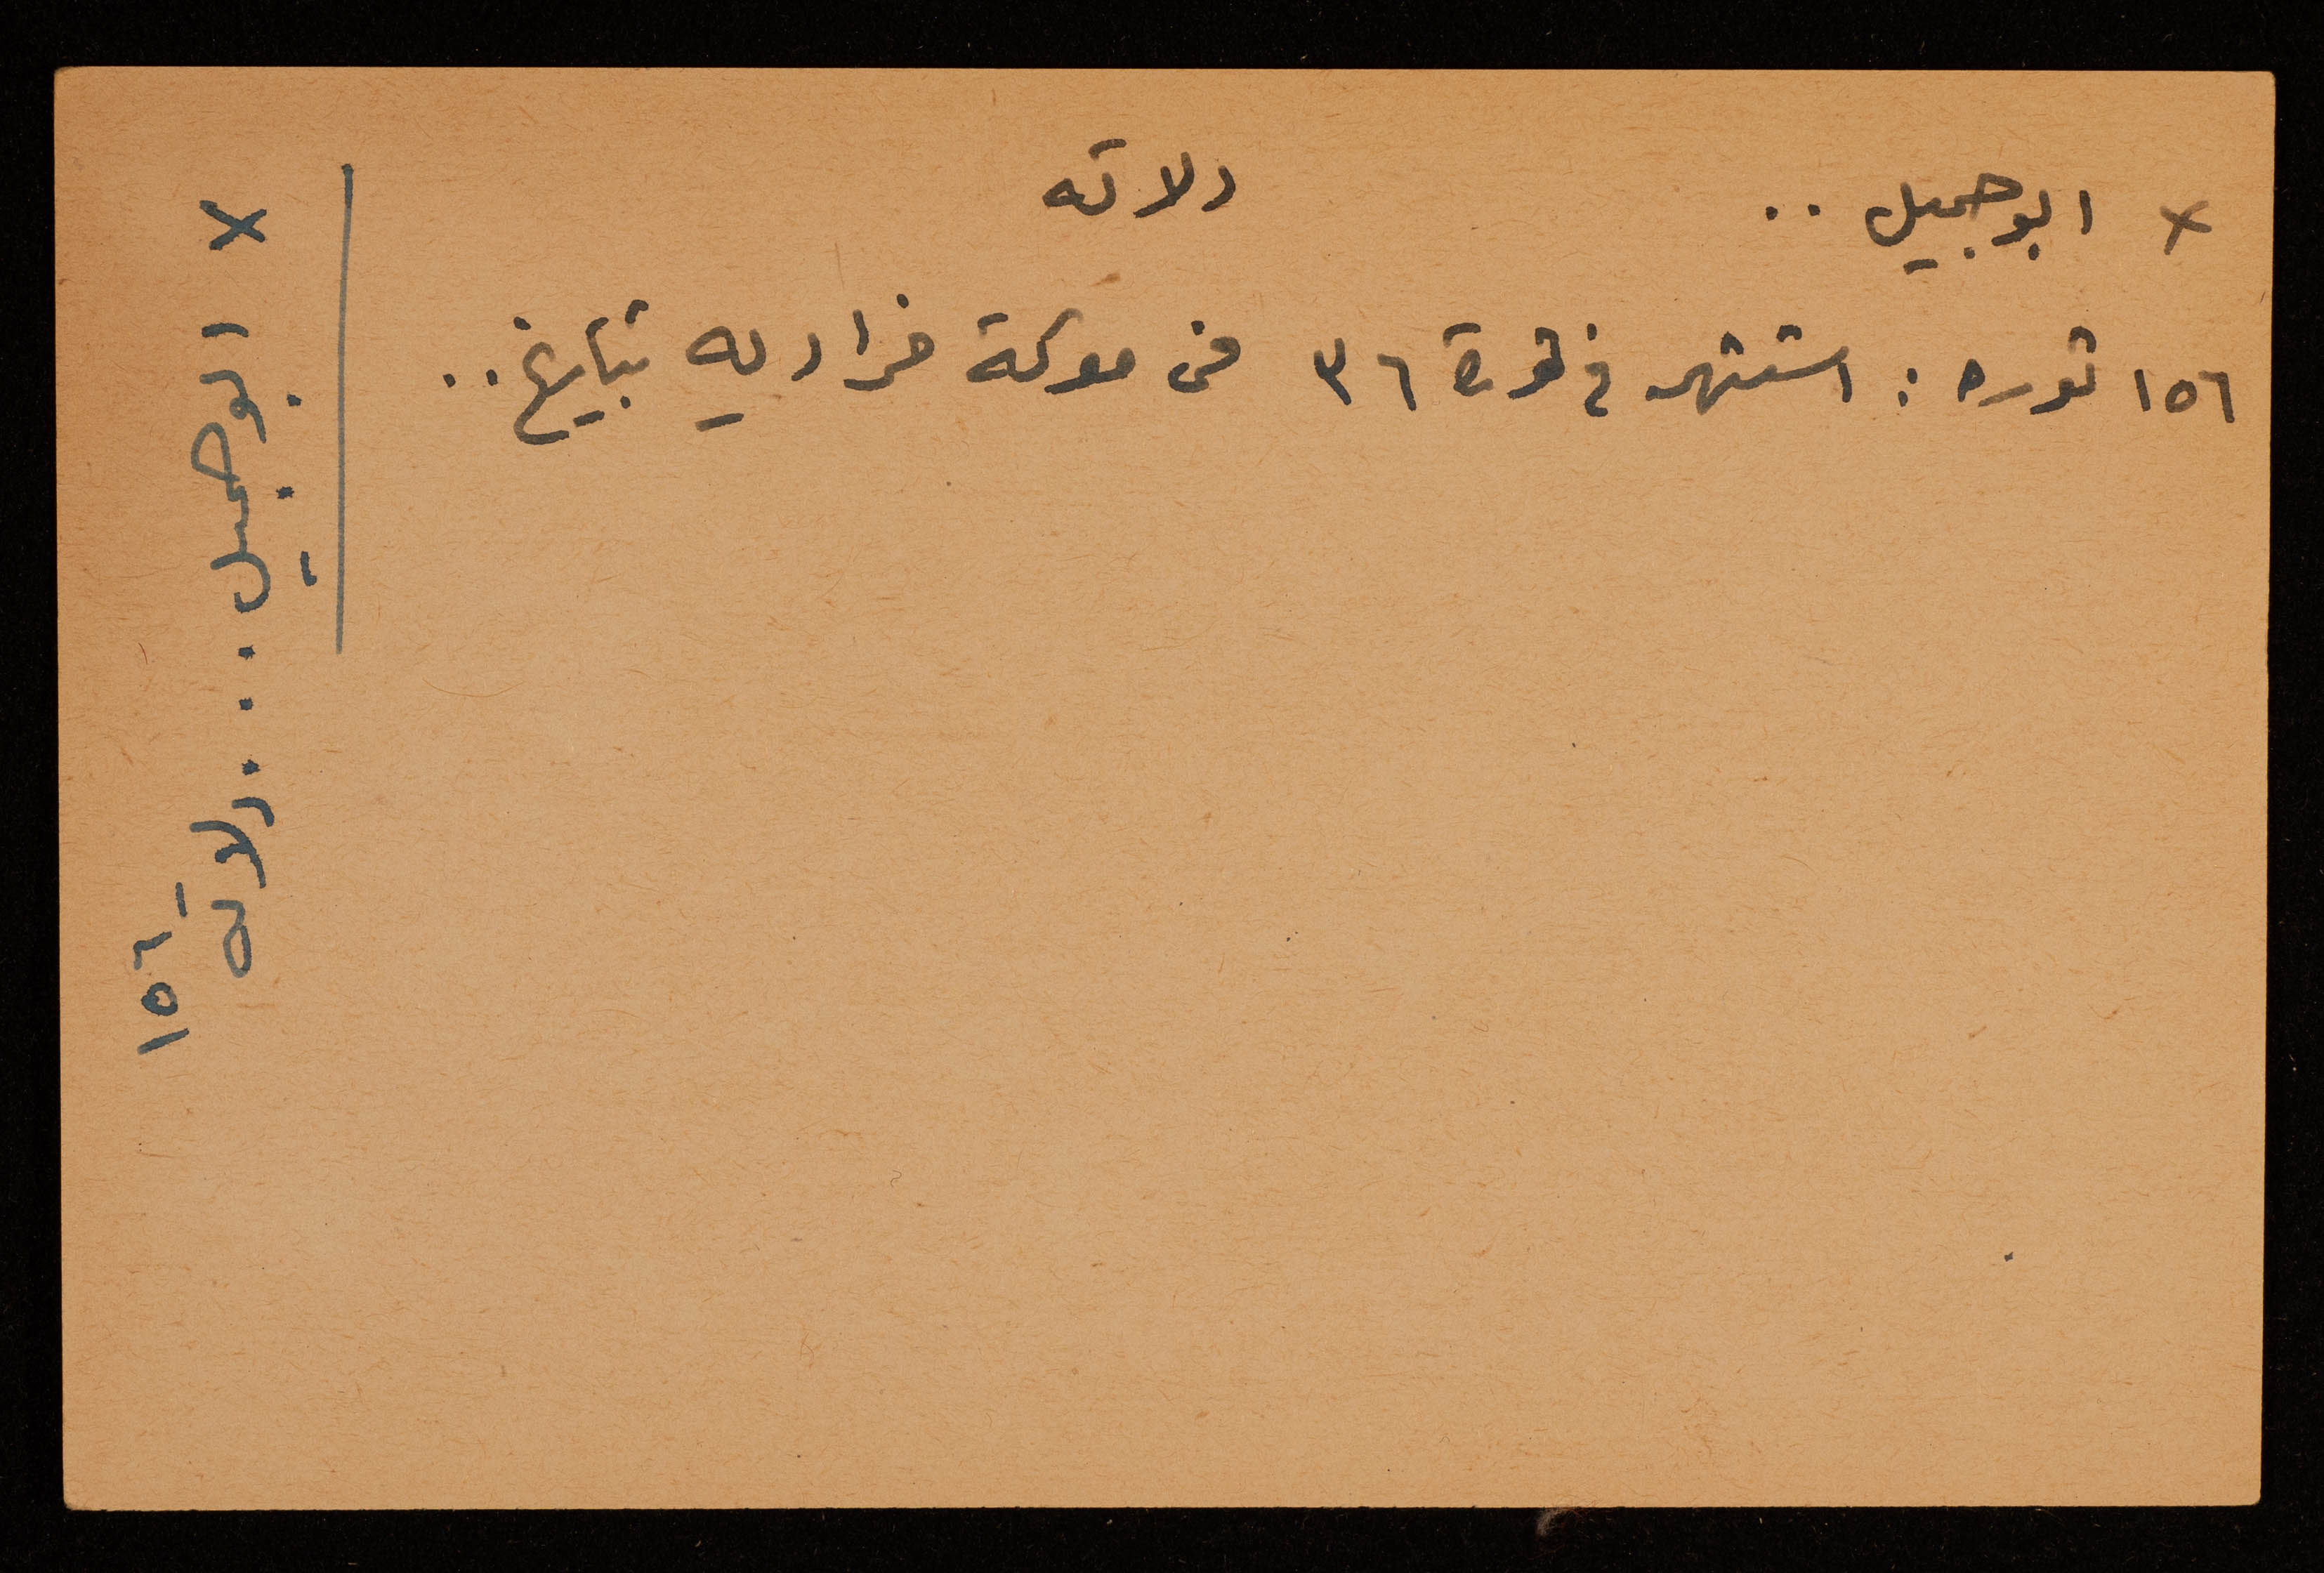 x ابو جميل .. دلاته
١٥٦ ثوره : استشهد في ثورة ٣٦ في معركة خرا بتاريخ ..
x ابو جميل .. . دلاته
١٥٦